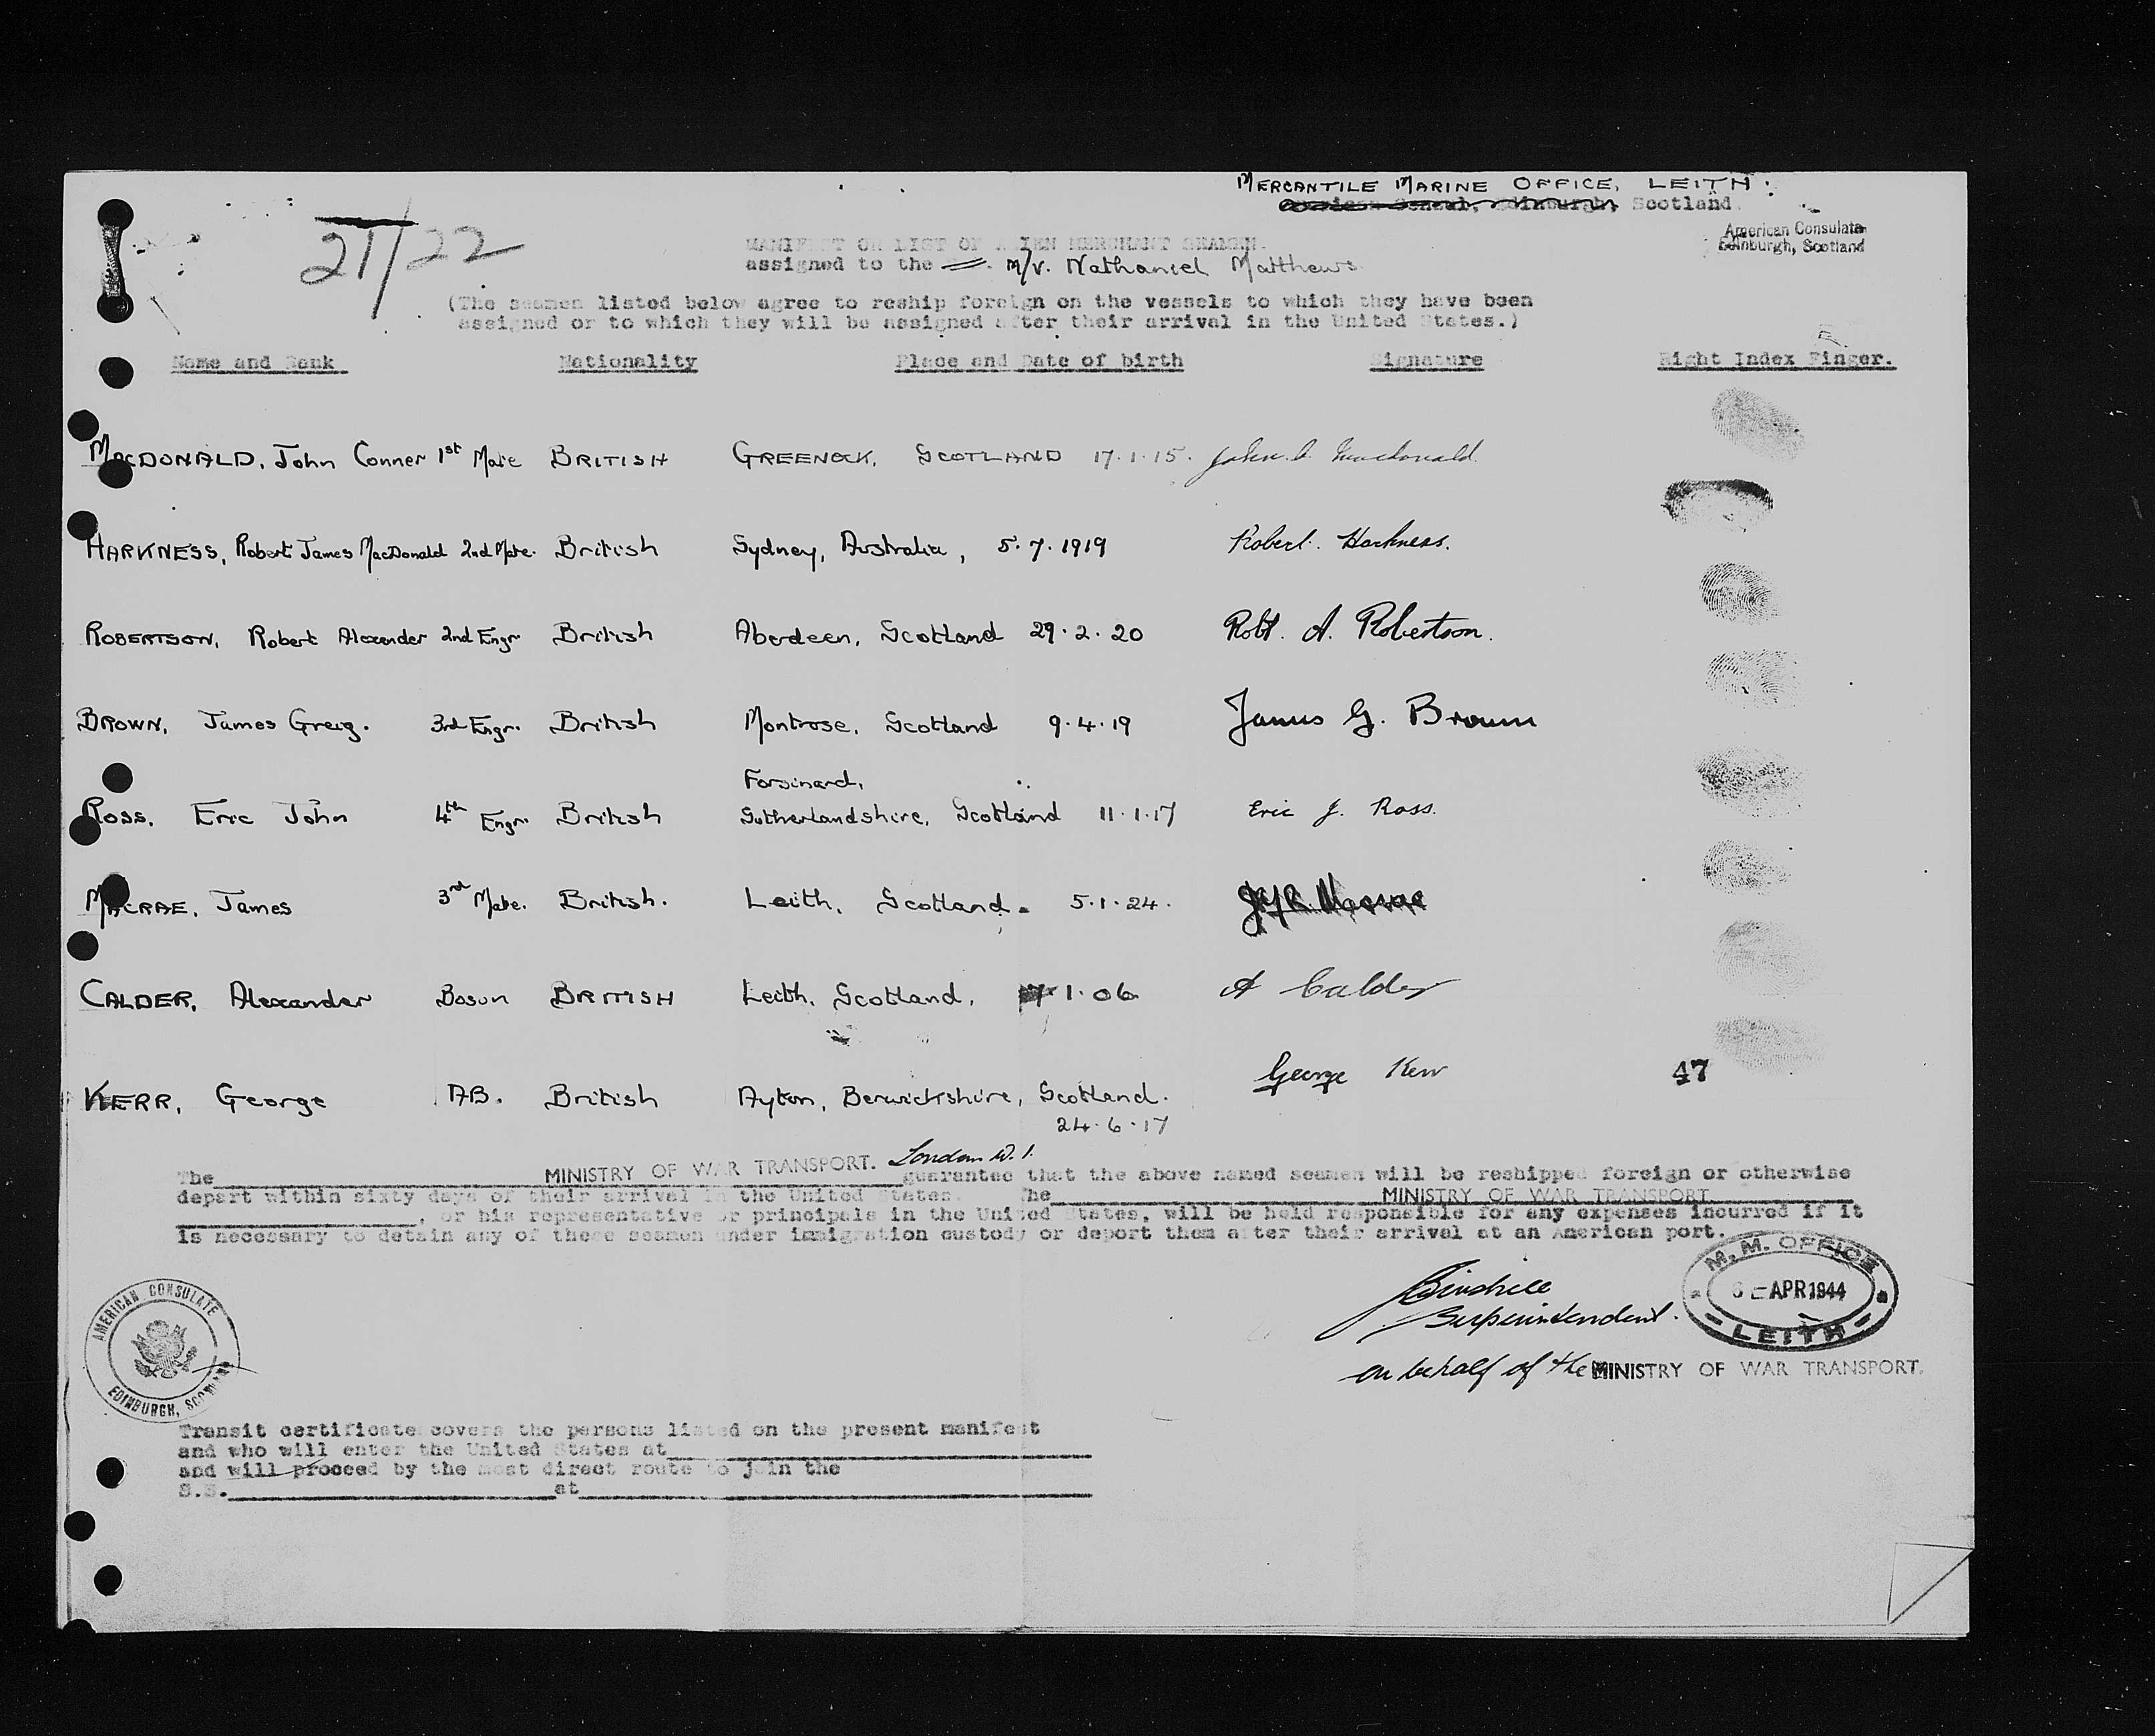 MERCANTILE MARINE OFFICE, LEITH:
Scotland.
American Consulate
Edinburgh, Scotland
21/22
MANIFEST OR LIST OF ALIEN MERCHANT SEAMEN.
assigned to the M/V. Nathaniel Matthews.
(The seamen listed below agree to reship foreign on the vessels to which they have been
assigned or to which they will be assigned after their arrival in the United States.)
Name and Rank Nationality Place and Date of birth Signature Right Index Finger.
MACDONALD, John Conner 1st Mate BRITISH GREENOCK, SCOTLAND 17.1.15. John. Macdonald.
HARKNESS, Robert James MacDonald 2nd Mate. British Sydney, Australia, 5.7.1919 Robert. Harkness.
ROBERTSON, Robert Alexander 2nd Engr. British Aberdeen, Scotland 29.2.20 Robt. A. Robertson.
BROWN, James Greig. 3rd Engr. British Montrose, Scotland 9.4.19 James G. Brown
Forsinard,
ROSS, Eric John 4th Engr. British Sutherlandshire, Scotland 11.1.17 Eric J. Ross.
MACRAE, James 3rd Mate. British. Leith, Scotland. 5.1.24.
CALDER, Alexander Bosun BRITISH Leith, Scotland, 1.06 A Calder
KERR, George A.B. British Ayton, Berwickshire, Scotland. George Kerr 47
24.6.17
The MINISTRY OF WAR TRANSPORT. London W.1. guarantee that the above named seamen will be reshipped foreign or otherwise
depart within sixty days of their arrival in the United States. The MINISTRY OF WAR TRANSPORT
, or his representative or principals in the United States, will be held responsible for any expenses incurred if it
is necessary to detain any of these seamen under immigration custody or deport them after their arrival at an American port.
Superintendent.
on behalf of the MINISTRY OF WAR TRANSPORT.
M. M. OFFICE
6 - APR 1944
LEITH
AMERICAN CONSULATE
EDINBURGH, SCOTLAND
Transit certificate covers the persons listed on the present manifest
and who will enter the United States at
and will proceed by the most direct route to join the
S.S. at